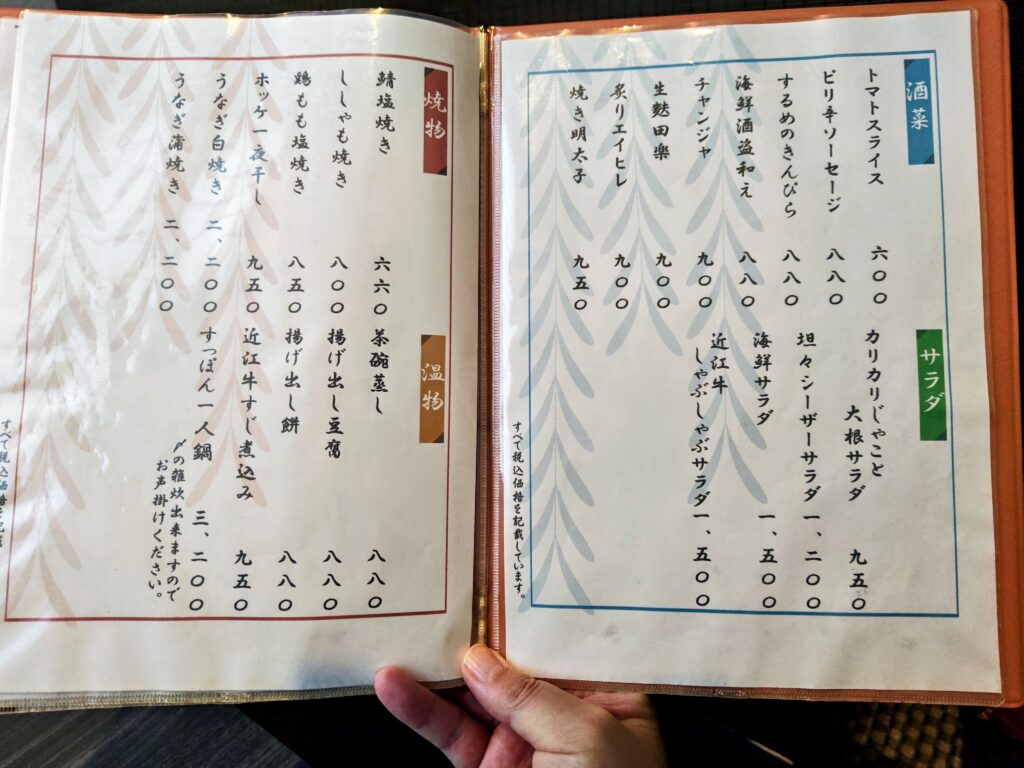 酒菜
トマトスライス 六〇〇
ピリ辛ソーセージ 八八〇
するめのきんぴら 八八〇
海鮮酒盗和え 八八〇
チャンジャ 九〇〇
生麩田楽 九〇〇
炙りエイヒレ 九〇〇
焼き明太子 九五〇
サラダ
カリカリじゃこと
大根サラダ 九五〇
坦々シーザーサラダ 一、二〇〇
海鮮サラダ 一、五〇〇
近江牛
しゃぶしゃぶサラダ 一、五〇〇
すべて税込価格を記載しています。
焼物
鯖塩焼き 六六〇
ししゃも焼き 八〇〇
鶏もも塩焼き 八五〇
ホッケ一夜干し 九五〇
うなぎ白焼き 二、二〇〇
うなぎ蒲焼き 二、二〇〇
温物
茶碗蒸し 八八〇
揚げ出し豆腐 八八〇
揚げ出し餅 八八〇
近江牛すじ煮込み 九五〇
すっぽん一人鍋 三、二〇〇
〆の雑炊出来ますので
お声掛けください。
すべて税込価格を記載